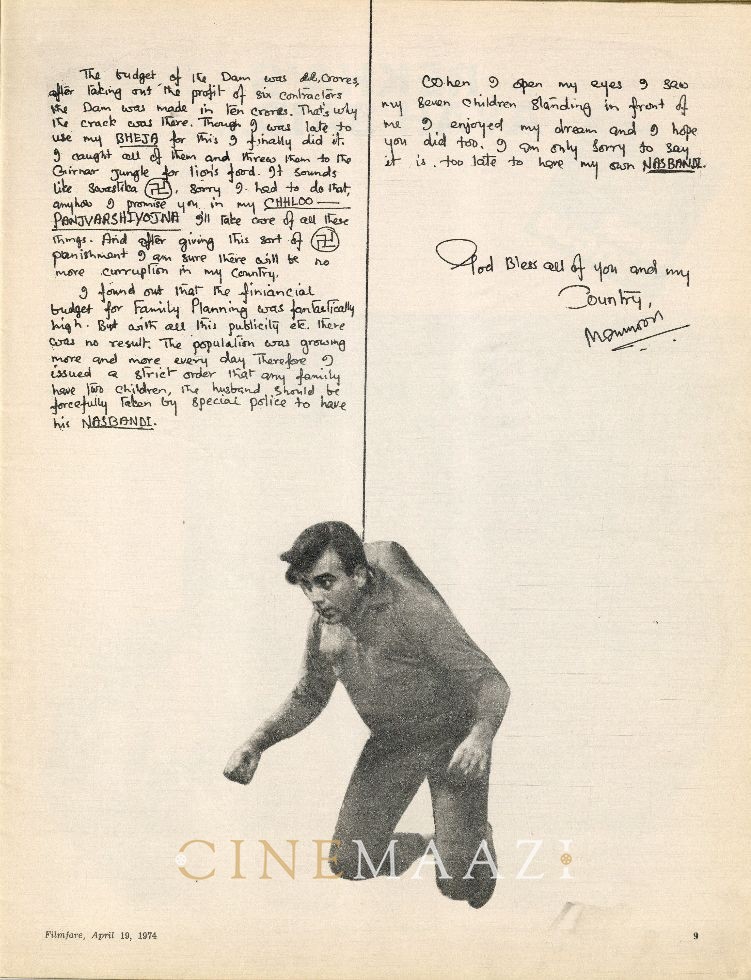 The budget of the Dam was crores,
after taking out the profit of six contractors
the Dam was made in ten crores. That's why
the crack was there. Though I was late to
use my BHEJA for this I finally did it.
I caught all of them and threw them to the
Girnar Jungle for lion's food. It sounds
like Swastika 卐, Sorry I had to do that,
anyhow I promise you in my CHHLOO —
PANJVARSHIYOJNA I'll take care of all these
things. And after giving this sort of 卐
punishment I am sure there will be no
more curruption in my Country.
I found out that the finiancial
budget for Family Planning was fantastically
high. But with all this publicity etc. there
was no result. The population was growing
more and more every day Therefore I
issued a strict order that any family
have two children, the husband should be
forcefully taken by special police to have
his NASBANDI.
When I open my eyes I saw
my seven children standing in front of
me I enjoyed my dream and I hope
you did too. I am only sorry to say
it is too late to have my own NASBANDI.
God Bless all of you and my
Country,
CINEMAAZI
Filmfare, April 19, 1974
9